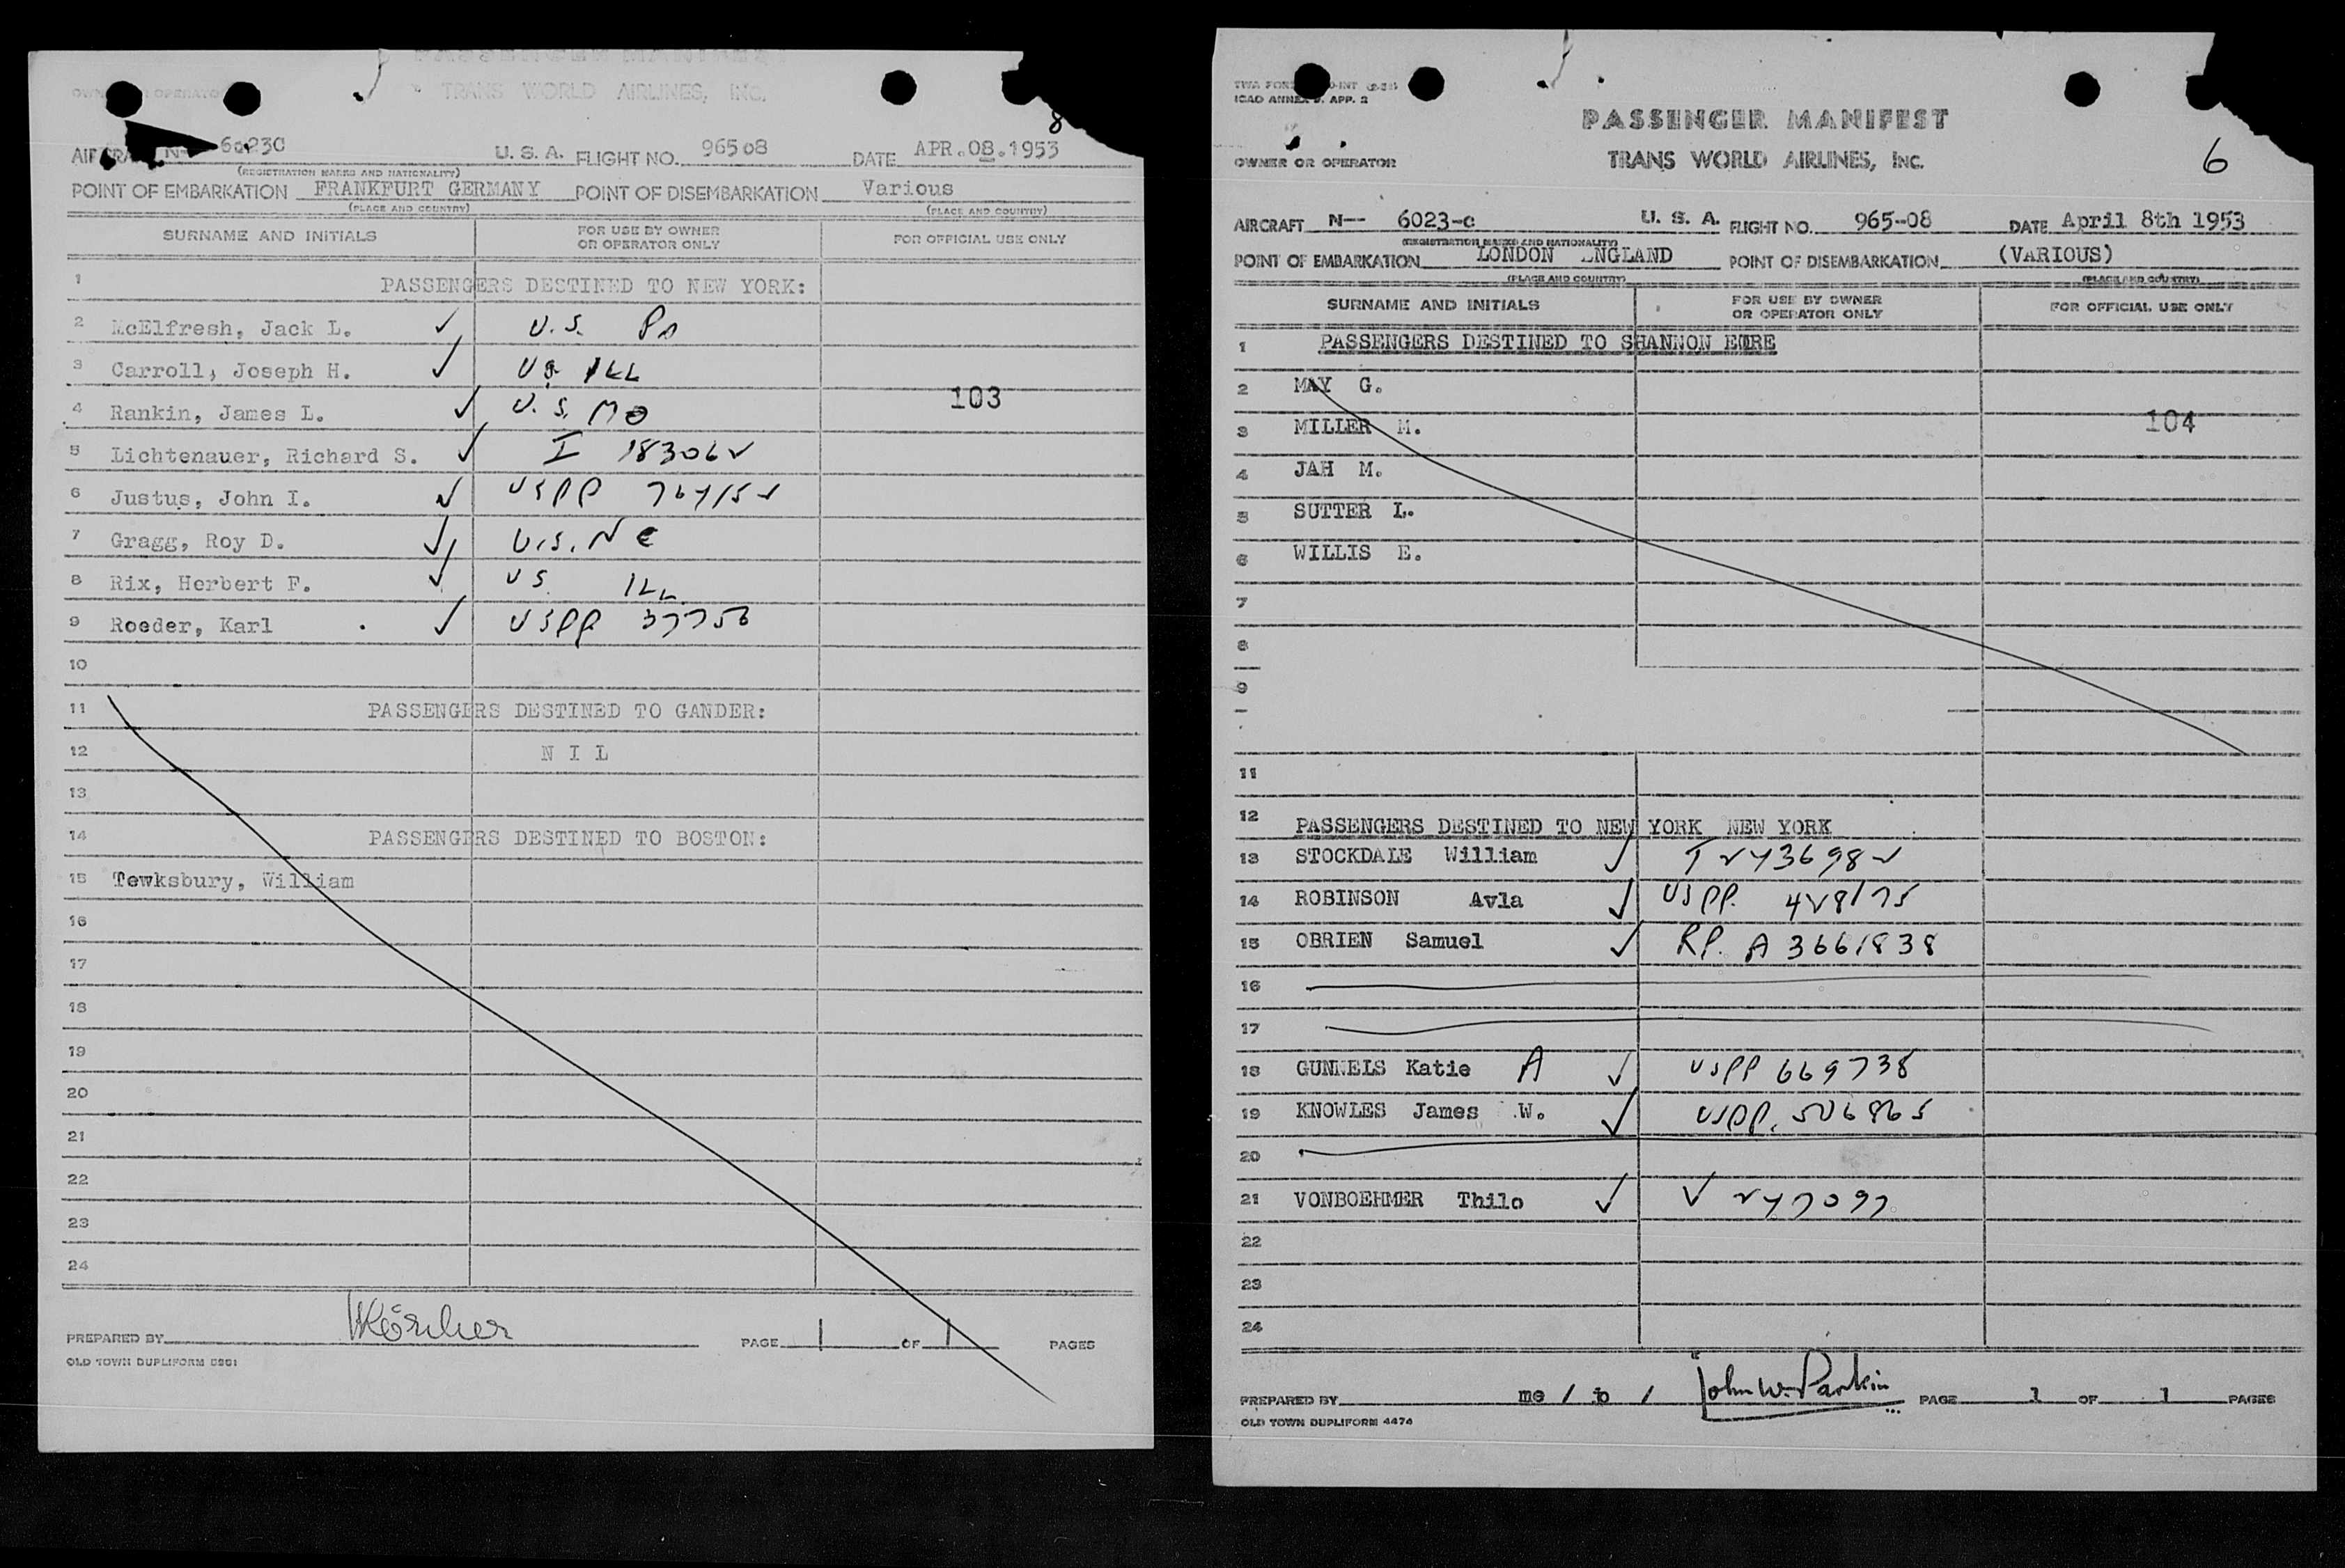 PASSENGER MANIFEST
TRANS WORLD AIRLINES, INC.
8
AIRCRAFT N- 6023C U. S. A. FLIGHT NO. 96508 DATE APR.08.1953
(REGISTRATION MARKS AND NATIONALITY)
POINT OF EMBARKATION FRANKFURT GERMANY POINT OF DISEMBARKATION Various
(PLACE AND COUNTRY) (PLACE AND COUNTRY)
SURNAME AND INITIALS FOR USE BY OWNER OR OPERATOR ONLY FOR OFFICIAL USE ONLY
1 PASSENGERS DESTINED TO NEW YORK:
2 McElfresh, Jack L. ✓ U.S. Pa
3 Carroll, Joseph H. ✓ US ILL
103
4 Rankin, James L. ✓ U.S. MO
5 Lichtenauer, Richard S. ✓ I 183062
6 Justus, John I. ✓ USPP
7 Gragg, Roy D. ✓ U.S. NC
8 Rix, Herbert F. ✓ US. ILL
9 Roeder, Karl ✓ USPP 37756
10
11 PASSENGERS DESTINED TO GANDER:
12 N I L
13
14 PASSENGERS DESTINED TO BOSTON:
15 Tewksbury, William
16
17
18
19
20
21
22
23
24
PREPARED BY PAGE 1 OF 1 PAGES
OLD TOWN DUPLIFORM 5251
ICAO ANNEX 9. APP. 2
PASSENGER MANIFEST
OWNER OR OPERATOR TRANS WORLD AIRLINES, INC. 6
AIRCRAFT N-- 6023-c U. S. A. FLIGHT NO. 965-08 DATE April 8th 1953
(REGISTRATION MARKS AND NATIONALITY)
POINT OF EMBARKATION LONDON ENGLAND POINT OF DISEMBARKATION (VARIOUS)
(PLACE AND COUNTRY) (PLACE AND COUNTRY)
SURNAME AND INITIALS FOR USE BY OWNER OR OPERATOR ONLY FOR OFFICIAL USE ONLY
1 PASSENGERS DESTINED TO SHANNON EIRE
2 MAY G.
104
3 MILLER M.
4 JAH M.
5 SUTTER L.
6 WILLIS E.
7
8
9
11
12 PASSENGERS DESTINED TO NEW YORK NEW YORK
13 STOCKDALE William ✓ I 2436982
14 ROBINSON Avla ✓ USPP. 428175
15 OBRIEN Samuel ✓ RP. A 3661838
16
17
18 GUNNELS Katie A ✓ USPP 669738
19 KNOWLES James W. ✓ USPP. 506865
20
21 VONBOEHMER Thilo ✓ V 247097
22
23
24
PREPARED BY me / jb / John W. Parkin PAGE 1 OF 1 PAGES
OLD TOWN DUPLIFORM 4474